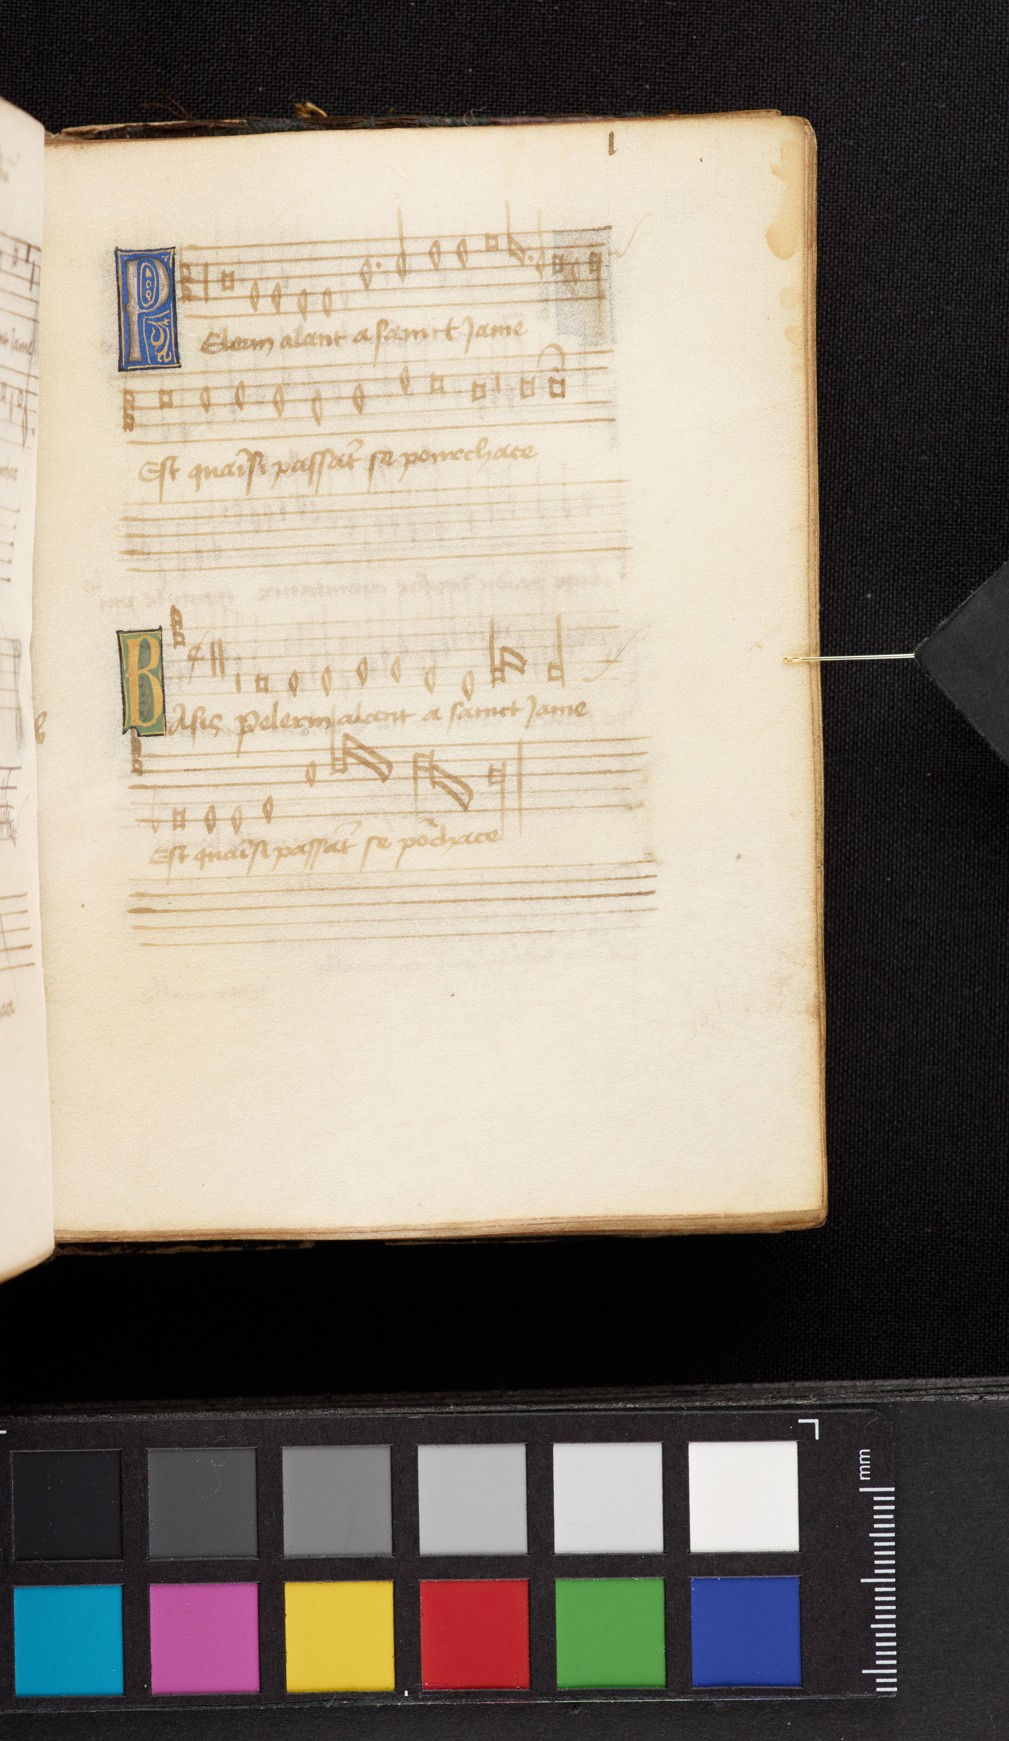 1
Pelerin alant a sainct Jame
Est quãt si passãt se pourchace
BAssis Pelerin alant a sainct Jame
Est quãt si passãt se põchace
mm